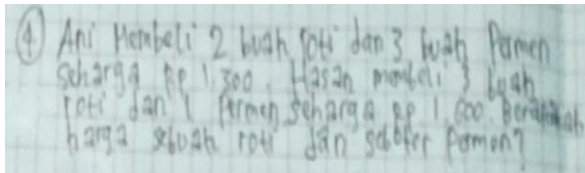 ④ Ani Membeli 2 buah roti dan 3 buah Permen
seharga Rp 1.300. Hasan membeli 3 buah
roti dan 1 Permen seharga Rp 1.600. Berapakah
harga sebuah roti dan sebutir Permen?